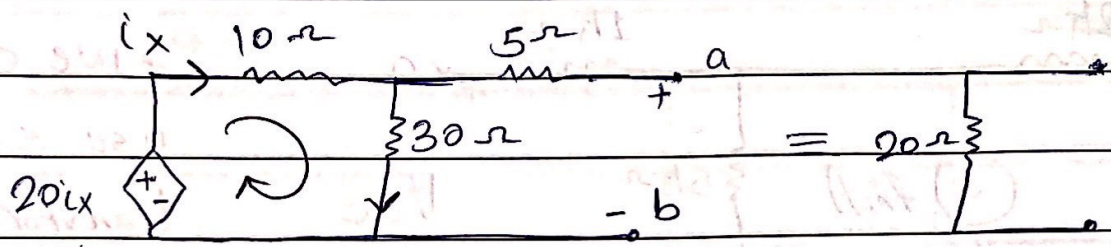 ix 10 Ω 5 Ω a
+
30 Ω = 20 Ω
20ix + -
- b